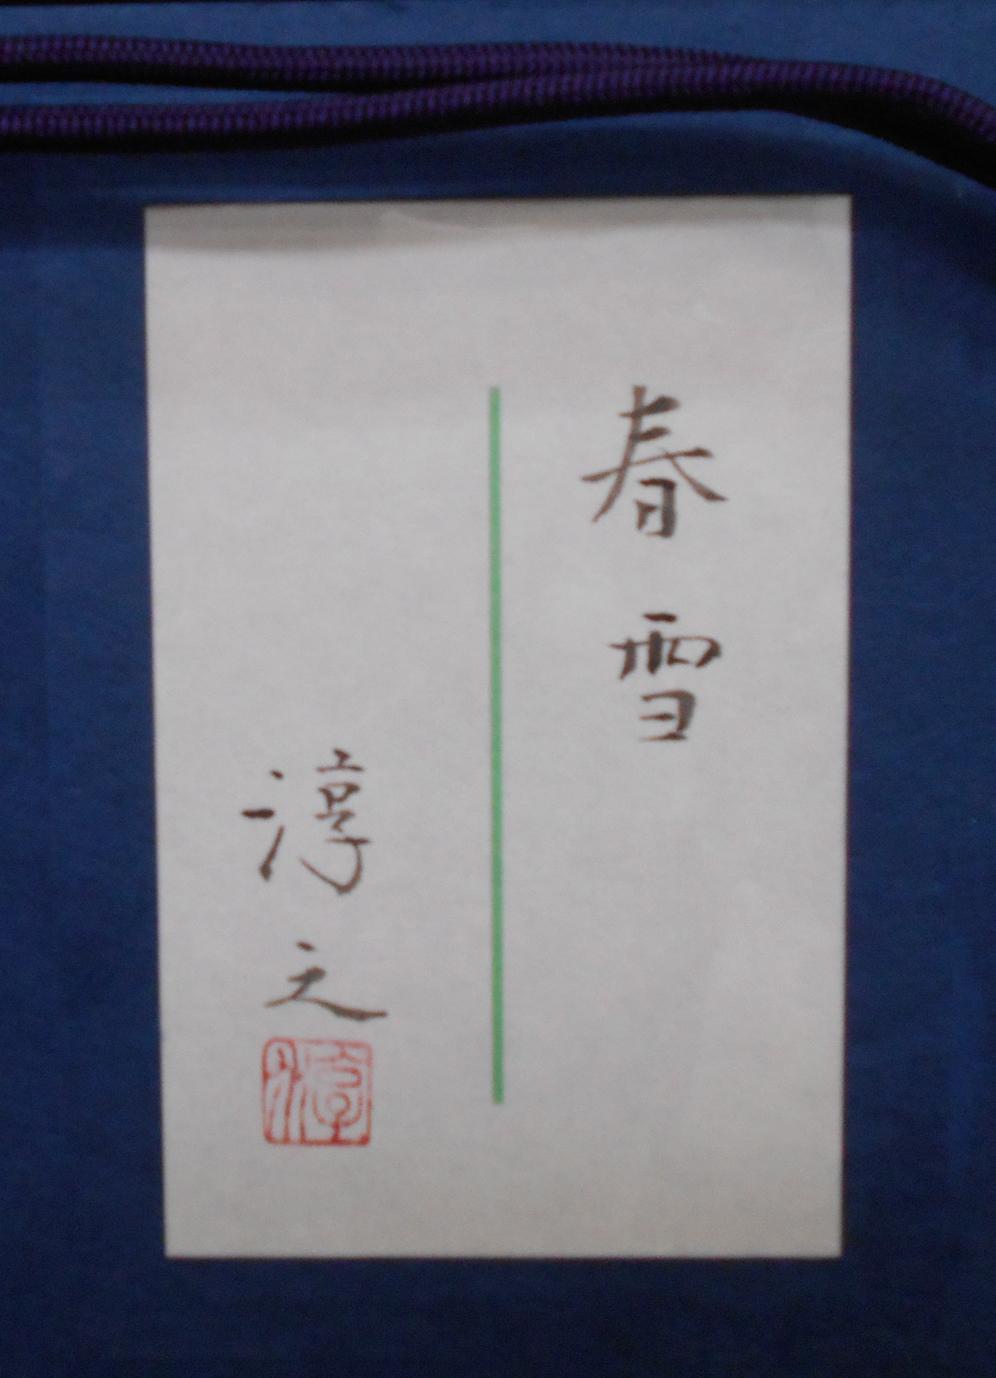 春雪
淳之
淳